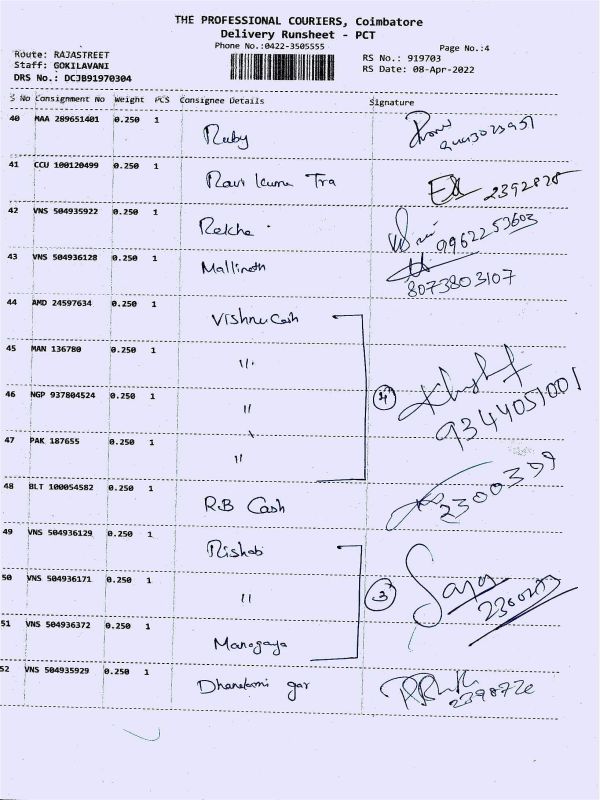 THE PROFESSIONAL COURIERS, Coimbatore
Delivery Runsheet - PCT
Phone No.:0422-3505555
Page No.:4
Route: RAJASTREET
Staff: GOKILAVANI
DRS No.: DCJB91970304
RS No.: 919703
RS Date: 08-Apr-2022
S No Consignment No Weight PCS Consignee Details Signature
40 MAA 289651401 0.250 1 Ruby
41 CCU 100120499 0.250 1 Ravi Kumar Tra 2392828
42 VNS 504935922 0.250 1 Rekha 9962253603
43 VNS 504936128 0.250 1 Mallinath 8073803107
44 AMD 24597634 0.250 1 Vishnu Cash
45 MAN 136780 0.250 1 "
46 NGP 937804524 0.250 1 " 4 9344051001
47 PAK 187655 0.250 1 "
48 BLT 100054582 0.250 1 R.B Cash 2300399
49 VNS 504936129 0.250 1 Rishab
50 VNS 504936171 0.250 1 " 3
51 VNS 504936372 0.250 1 Manogaya
52 VNS 504935929 0.250 1 gar